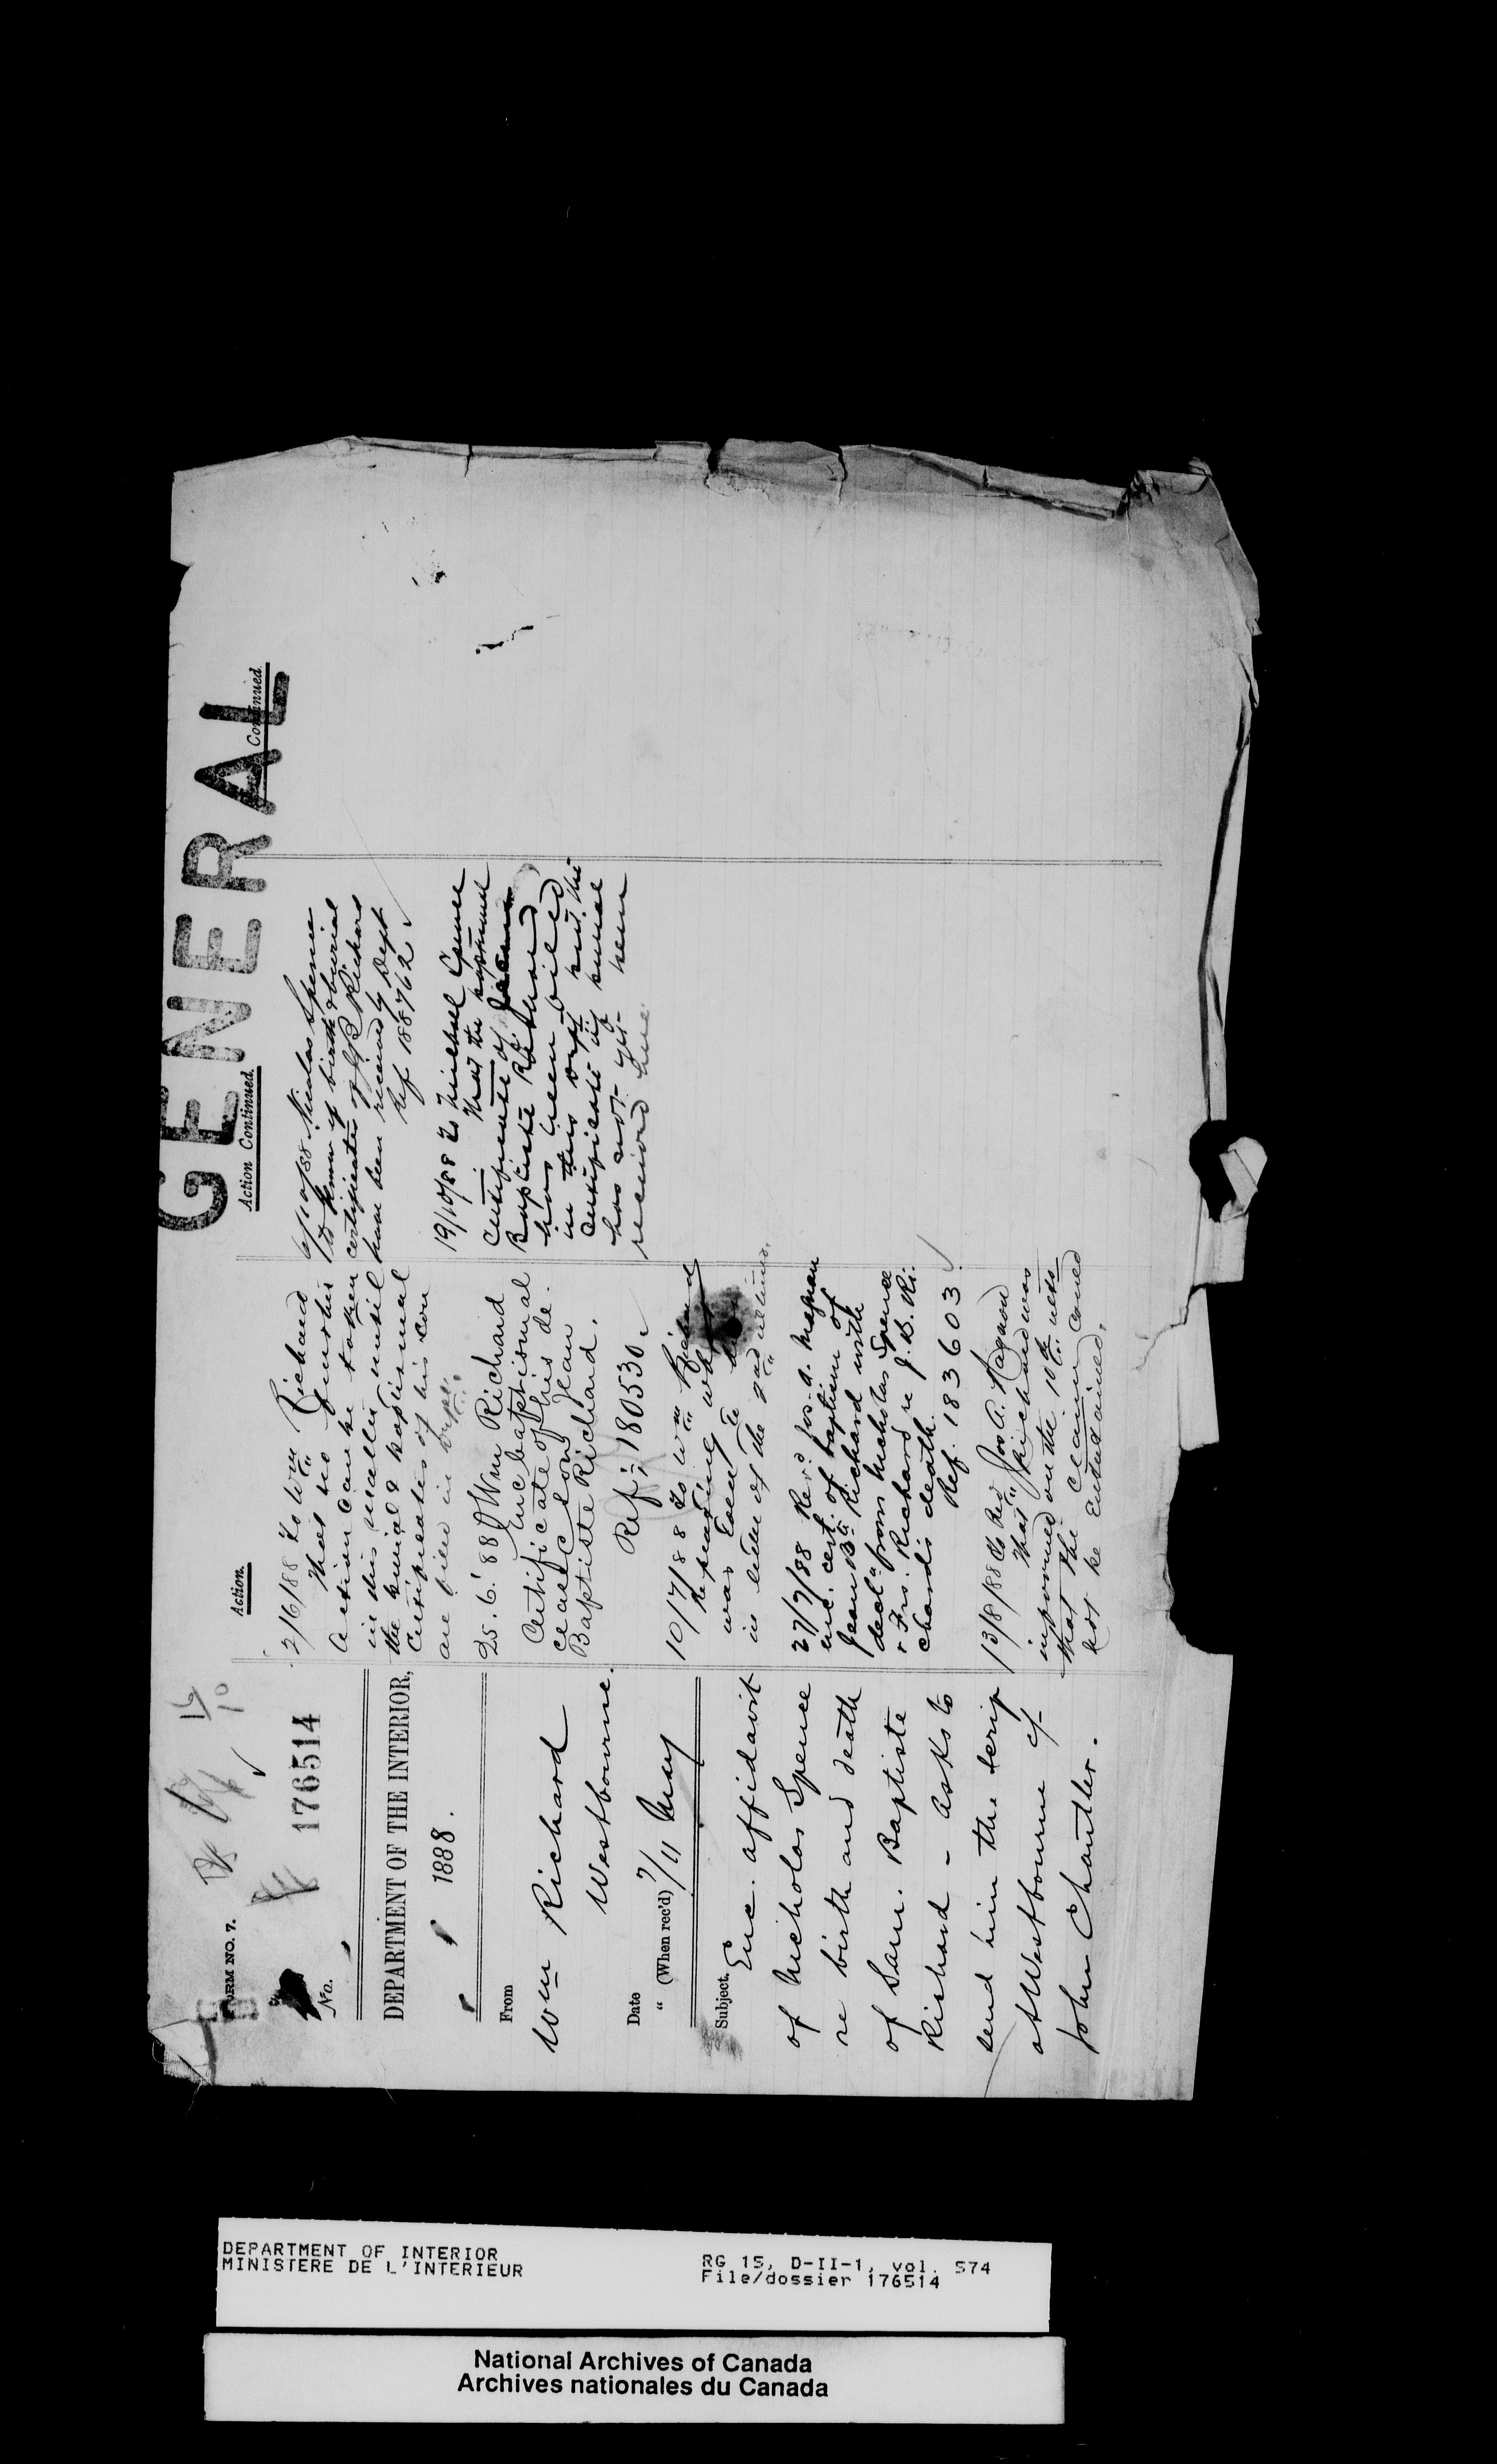 GENERAL
FORM NO. 7.
No. 176514
DEPARTMENT OF THE INTERIOR,
1888.
From
Wm Richard
Westbourne.
Date
" (When rec'd) 7/11 May
Subject.
Enc. affidavit
of Nicholas Spence
re birth and death
of Sam. Baptiste
Richard - asks to
send him the scrip
at Westbourne c/-
John Chantler.
Action.
2/6/88 To Wm Richard
that no further
action can be taken
in this matter until
the burial & baptismal
certificates of his son
are filed in Dept.
25.6.'88 Wm Richard
Enc baptismal
Certificate of his de-
ceased son Jean
Baptiste Richard.
Ref: 180530
10/7/88 To Wm Richard
Repeating what
was
in letter of the 2nd ultimo.
27/7/88 Revd Jos. A. Magnan
enc. cert. of baptism of
Jean Bte Richard with
decln from Nicholas Spence
& Frs. Richard re J. B. Ri-
chard's death.
Ref. 183603
13/8/88 To Rev Jos A. Magnan
that Richard was
informed on the 10th
that the claim could
not be entertained.
Action Continued.
6/10/88 Nicolas Spence
to know if birth & burial
certificates of JB Richard
have been received by Dept
Ref 188762
19/10/88 To Michael
that the baptismal
Certificate of Jean
Baptiste Richard,
has been filed
in this Dept but the
certificate of burial
has not yet been
received here
Continued
DEPARTMENT OF INTERIOR
MINISTERE DE L'INTERIEUR
RG 15, D-II-1, vol. 574
File/dossier 176514
National Archives of Canada
Archives nationales du Canada